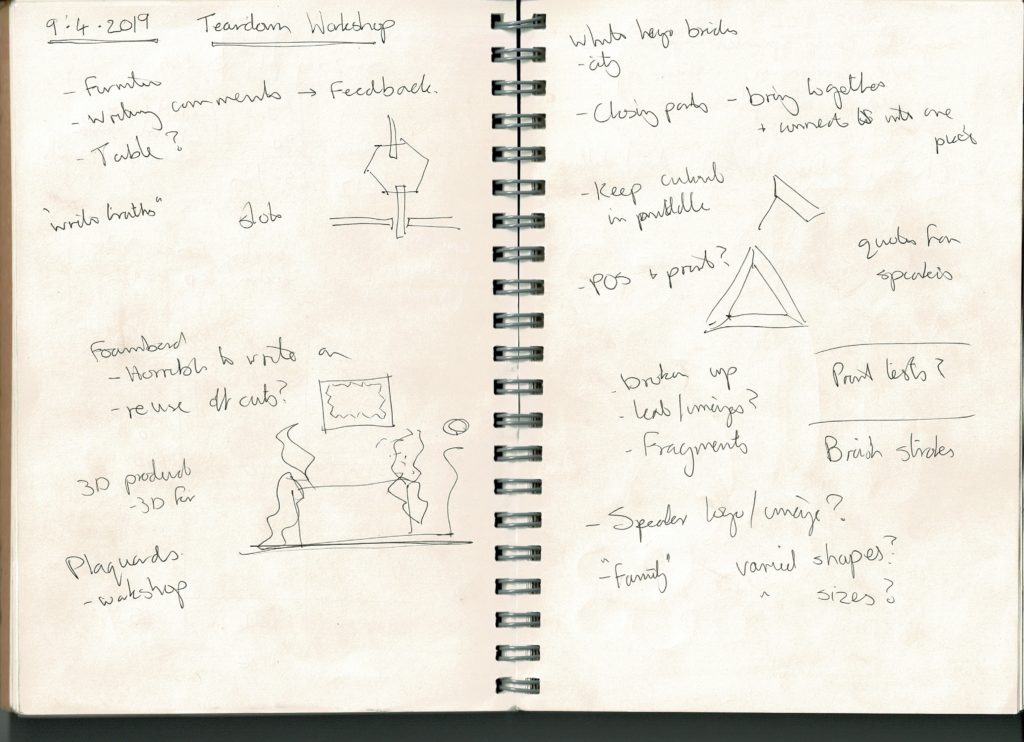 9.4.2019 Teardown Workshop
- Furniture
- Writing comments → Feedback.
- Table?
slots
Foamboard
- Horrible to write on
- reuse off cuts?
3D product
- 3D for
Plaquards
- workshop
white lego bricks
- city
- Closing parts - bring together
+ connect into one
place
- Keep cutouts
in
quotes from
speakers
- POS + print?
- broken up
- text/images?
- Fragments
Print tests?
Brush strokes
- Speaker logo/image?
- "Family" varied shapes?
" sizes?